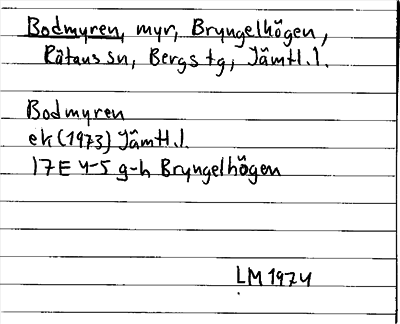 Bodmyren, myr, Bryngelhögen,
Rätans sn, Bergs tg, Jämtl.l.
Bodmyren
ek (1973) Jämtl.l.
17E 4-5 g-h Bryngelhögen
LM 1974